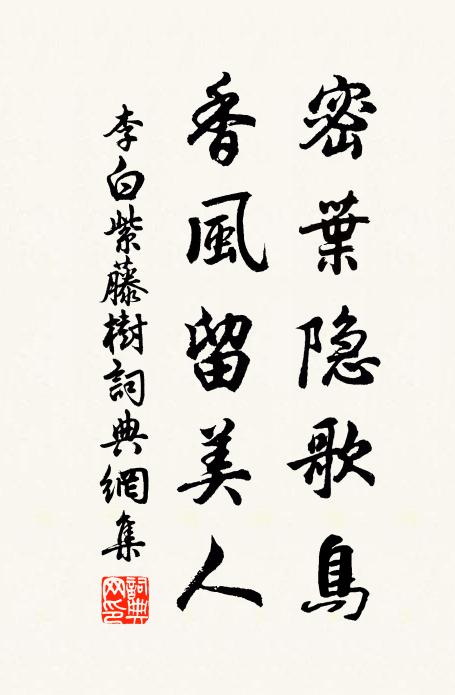 密葉隐歌鳥
香風留美人
李白紫藤樹詞典網集
詞典網印